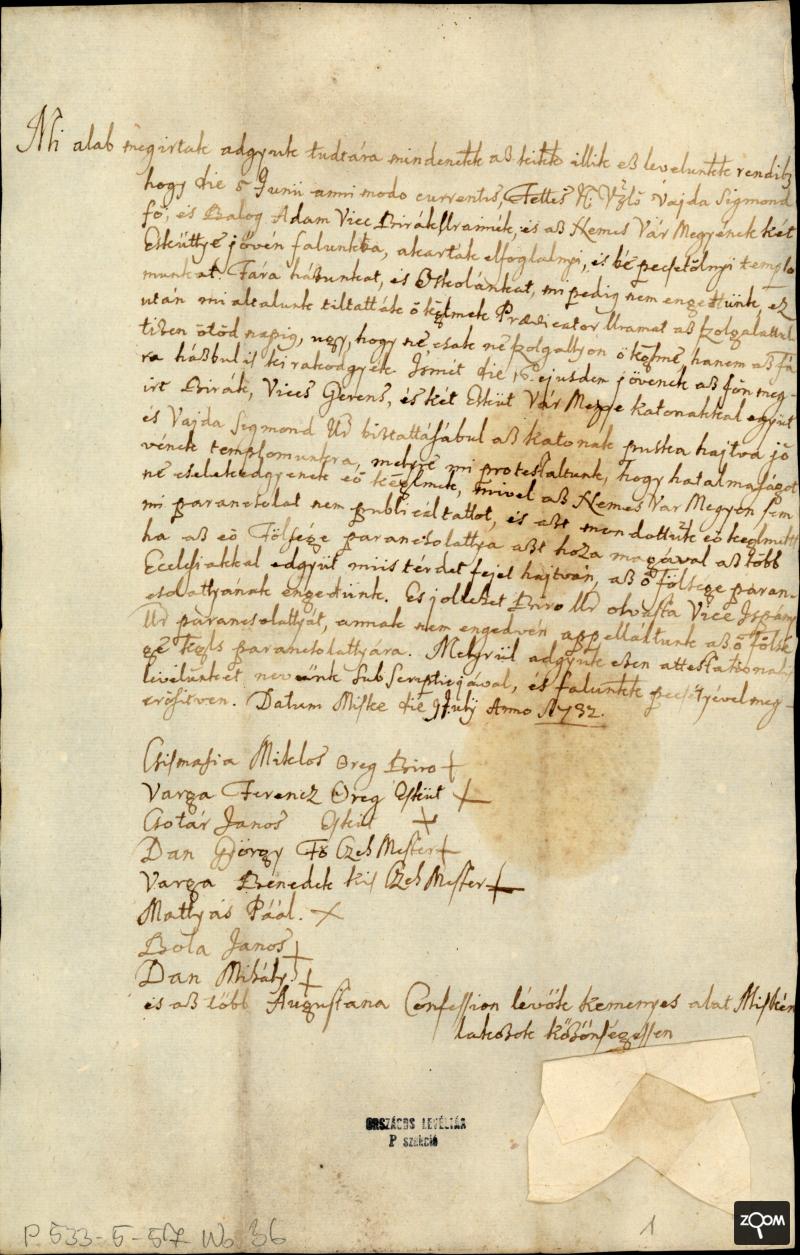 Mi alab megirtak adgyuk tudtára mindeneknek aß kiknek illik eß levelunknek rendiben
hogy die 5 Junii anni modo currentis, Tettes N: Vzlő Vajda Sigmond
fő, és Balog Adam Vice Birák Uraimék, és aß Nemes Vár Megyének két
Eskűttye jővén falunkba, akarták elfoglalnyi, és bé pecsetőlnyi templo
munkat. Fára háßunkat, és Oskolánkat, mi pedig nem engedtűnk, ez
után mi altalunk tiltatták ő keglmek Prædicator Uramat aß szolgalattul
tißen ötöd napig, ugy, hogy ne csak ne szolgallyon ő keglme, hanem aß fá
ra háßbul is ki rakodgyék. Ismét die ejusdem jővenek aß főn meg-
irt Birák, Vices Gerens, és két Eskűt Vár Megye katonakkal egyűt
és Vajda Sigmond Ur bistattásábul aß katonak puska hajtva jő
vének templomunkra, mellyre mi protestaltunk, hogy hatalmaságot
ne cselekedgyenek eő keglmek, mivel aß Nemes Var Megyén sem
mi parancsolat nem publicáltatot, és aßt mondottuk eő keglmeknek
ha aß eő Fölsége parancsolattya aßt hoza magával aß tőbb
Ecclesiakkal edgyűt mi is térdet fejet hajtván, aß ő főlsege paran-
csolattyának engedűnk. És jollehet Biro Ur olvasta Vice Ispány
Ur parancsolattyát, annak nem engedvén appelláltunk aß ő főlsé
ge kgls parancsolattyára. Melyrűl adgyuk eßen attestationalis
levelunket nevűnk subscriptiojával, és falunknak pecsétyével meg-
erősitven. Datum Miske die July Anno 1732.
Csismasia Miklos Öreg Biro +
Varga Ferencz Öreg Esküt +
Csotár Janos Esküt +
Dan György Fő Czeh Mester +
Varga Benedek kis Czeh Mester +
Mattyás Páál. +
Bota Janos +
Dan Mihály +
és aß tőbb Augustana Confession lévők Kemenyes alat Miskén
lakoßok kößőnségessen
ORSZÁGOS LEVÉLTÁR
P szekció
P 533-5-57 No 36
1
ZOOM